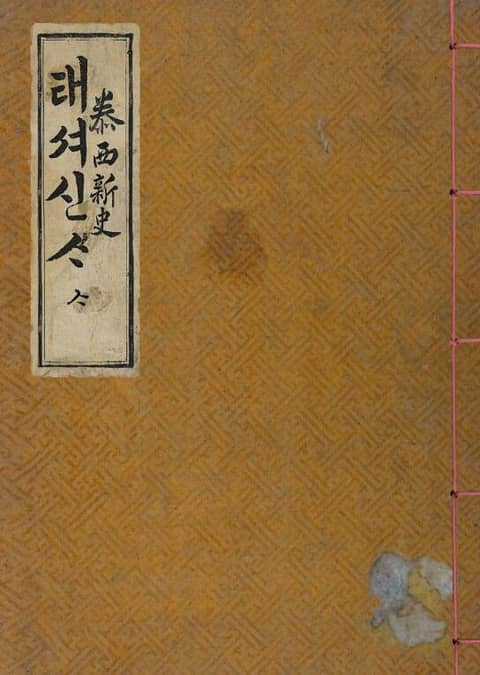 태셔신ᄉᆞ
泰西新史